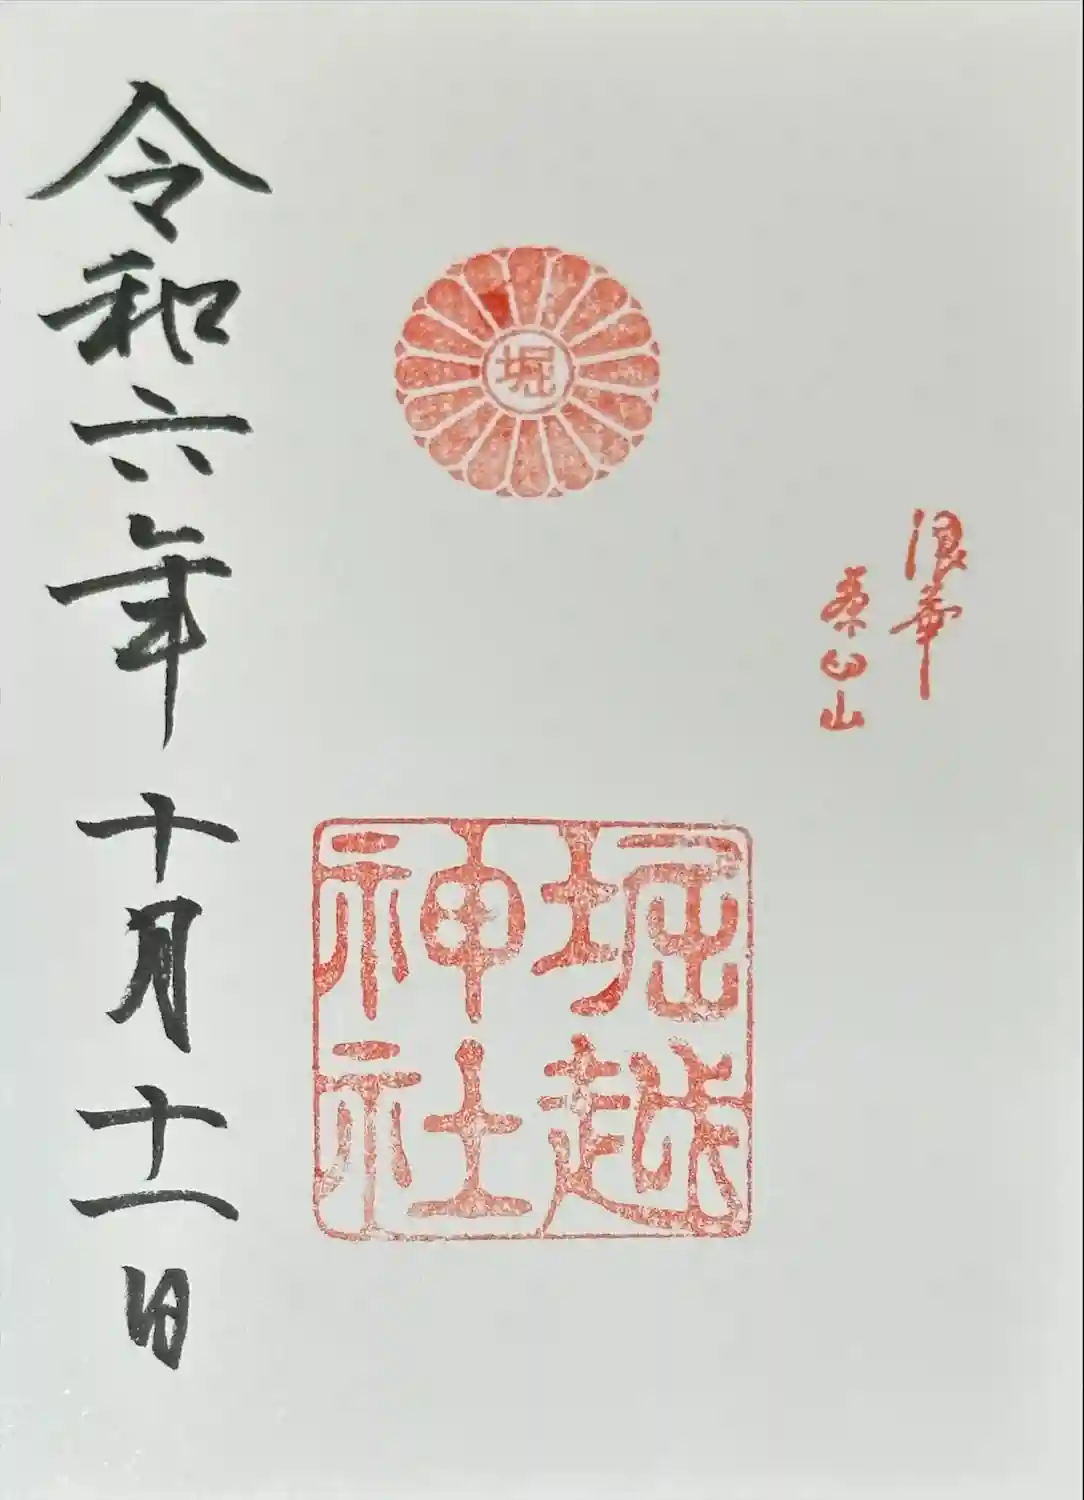 浪華
茶臼山
堀
堀越
神社
令和六年十月十一日